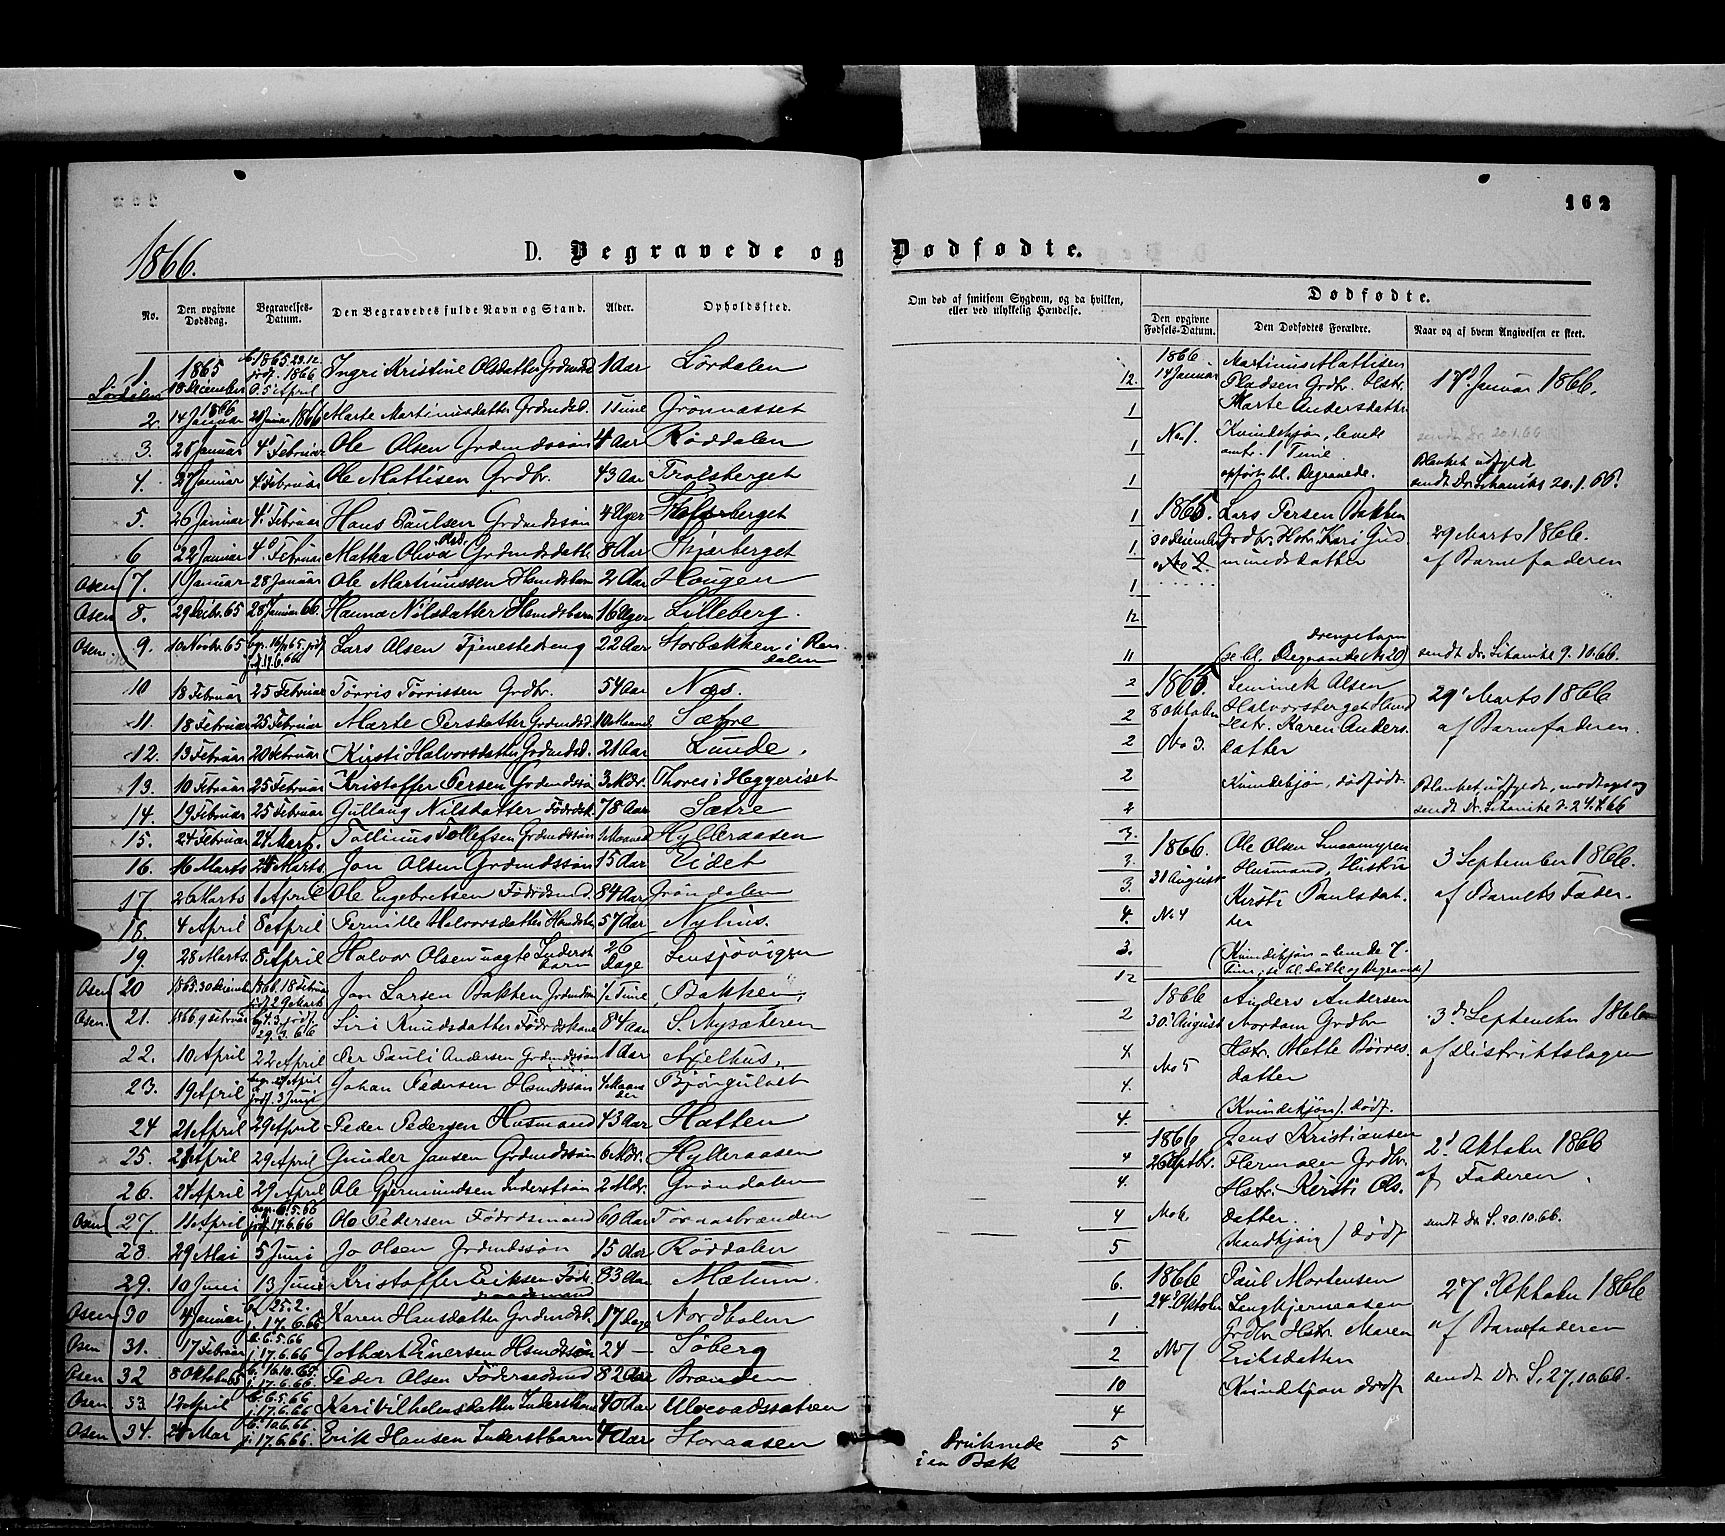 162
1866.
D. Begravede og Dødfødte.
No. Den opgivne Dødsdag. Begravelses-Datum. Den Begravedes fulde Navn og Stand. Alder. Opholdssted.
1 1865 18 December Ingri Kristine Olsdatter Grdmdsd. 1 Aar Lørdalen
2. 14 Januar 1866 Marte Martinusdatter Grdmdsd. 1 Time Grønnæsset
3. 28 Januar 4 Februar Ole Olsen Grdmdssøn 4 Aar Røddalen
4. 27 Januar 4 Februar Ole Mattisen Grdbr. 43 Aar Trolsberget
5. 26 Januar 4 Februar Hans Paulsen Grdmdssøn 4 Uger
6 22 Januar 4 Februar Mathea Oliva Grdmdsdatt. 8 Aar Skjærberget
Osen 7. 1 Januar 28 Januar Ole Martinussen Hsmdsbarn 2 Aar Hougen
Osen 8. 29 Decbr. 65 28 Januar 66. Hanna Nilsdatter Hsmdsbarn 16 Uger Lilleberg.
Osen. 9. 10 Novbr. 65 Lars Olsen Tjenestedreng 22 Aar Storbækken i Rendalen
10 18 Februar 25 Februar Torris Torrissen Grdbr. 54 Aar Næs.
11. 18 Februar 25 Februar Marte Persdatter Grdmdsd. 10 Maaned Sætre
12. 13 Februar 20 Februar Kirsti Halvorsdatter Grdmdsd. 21 Aar Lunde.
13. 10 Februar 25 Februar Kristoffer Persen Grdmdssøn 3 Mdr. Thores i Heggeriset
14. 19 Februar 25 Februar Gullaug Nilsdatter Føderdsk. 78 Aar Sætre
15. 24 Februar 24 Marts. Tollinus Tollefsen Grdmdssøn 1 Maaned Hylleraasen
16. 16 Marts 24 Marts. Jon Olsen Grdmdssøn 15 Aar Eidet
17. 26 Marts 1 April Ole Engebretsen Føderdsmd. 84 Aar Grøndalen
18. 4 April 8 April Pernille Halvorsdatter Hsmdsk. 57 Aar Nyhus.
19. 28 Marts. 8 April Halvor Olsen uægte Inderstbarn 26 Dage Sensjøvigen
Osen 20 1865. 30 December 1866. 18 Februar Jon Larsen Bakken Grdmdssøn 1/2 Time Bakken.
Osen. 21. 1866. 9 Februar Siri Knudsdatter Føderdskone 84 Aar S. Nysæteren
22. 10 April 22 April Per Pauli Andersen Grdmdssøn 1 Aar Axelhus.
23. 19 April Johan Pedersen Hsmdssøn 4 Maaneder Bjøngulvet
24 21 April 29 April Peder Pedersen Husmand 43 Aar Hatten
25. 21 April 29 April Gunder Jonsen Grdmdssøn 6 Mdr. Hylleraasen
26. 21 April 29 April Ole Gjermundsen Inderstsøn 2 Mdr. Grøndalen
Osen 27. 11 April Ole Pedersen Føderdsmand 60 Aar Tornæsbrænden
28. 29 Mai 5 Juni Jo Olsen Grdmdssøn 15 Aar Røddalen
29. 10 Juni 13 Juni Kristoffer Eriksen Føderaadsmand 83 Aar Mætum.
Osen 30 4 Januar b. 25.2. j. 17.6.66 Karen Hansdatter Grdmdsd. 17 Dage Nordbolen
Osen 31. 17 Februar b. 6.5.66 j. 17.6.66 Hsmdssøn 24 — Søberg
Osen 32 8 Oktober 65 b. 16.10.65. j. 17.6.66. Peder Olsen Føderaadsmd 82 Aar Brænden
Osen 33. 12 April b. 6.5.66 j. 17.6.66 Kari Vilhelmsdatter Inderstkone 40 Aar Ulvevadssætren
Osen 34. j. 17.6.66. Erik Hansen Inderstbarn 4 Aar Storaasen
Om død af smitsom Sygdom, og da hvilken, eller ved ulykkelig Hændelse.
Druknede
i en Bæk
Dødfødte.
Den opgivne Fødsels-Datum. Den Dødfødtes Forældre. Naar og af hvem Angivelsen er skeet.
12. 1 1 1 1 1 1 12 11 2 2 2 2 2 3. 3. 3. 4. 3. 12 2 4. 4. 4. 4 4. 4 5 6. 1. 2 10 4 5
1866. 14 Januar
No 1.
Martinus Mattisen
Pladsen Grdbr. Hstr.
Marte Andersdatter
Kvindekjøn, levede
omtr. 1 Time
opført bl. Begravede.
17 Januar 1866.
sendt Dr. 20.1.66
Blanket udfyldt
sendt Dr. 20.1.66.
1865. 30 December
No 2.
Lars Persen Bakken
Grdbr. Hstr. Kari Gud
mundsdatter
Drengebarn
(se bl. Begravede No 20)
29 Marts 1866.
af Barnefaderen
sendt Dr. 9.10.66.
1865. 8 Oktober
No 3.
Olsen
Halvorsberget Hsmd
Hstr. Karen Anders
datter
Kvindekjøn, dødfødt
29 Marts 1866
af Barnefaderen.
Blanket udfyldt, modtaget og
sendt Dr. 24.4.66
1866. 31 August
No 4
Ole Olsen
Husmand, Hustru
Kirsti Paulsdat-
ter
(Kvindekjøn levede 7
Tim., se bl. Døbte og Begravede)
3 September 1866.
af Barnets Fader.
1866 30 August
No 5
Anders Andersen
Nordam Grdbr
Hstr. Mette Børres
datter
(Kvindekjøn) dødf.
3 September 1866
af Distriktslægen
1866 26 Septbr.
No 6.
Jens Kristiansen
Flermoen Grdbr.
Hstr. Kirsti Ols.
datter.
(Mandkjøn) dødf
2 Oktober 1866
af Faderen.
sendt Dr. S. 20.10.66.
1866 24 Oktober
No 7
Paul Mortensen
Lengkjernaasen
Grdbr Hstr. Maren
Eriksdatter
Kvindekjøn dødf
27. Oktober 1866
af Barnefaderen
sendt Dr. S. 27.10.66.